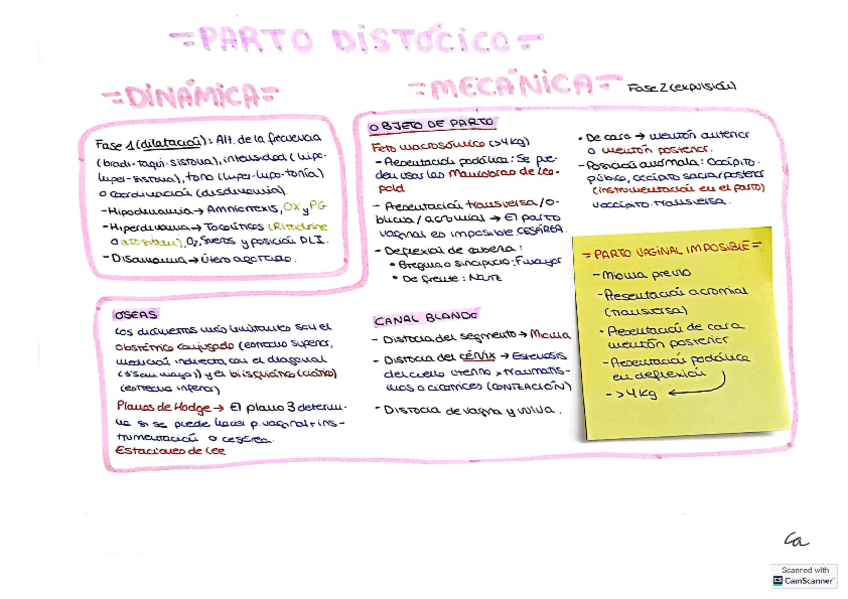 =PARTO DISTÓCICO=
=DINÁMICA=
Fase 1 (dilatación): Alt. de la frecuencia
(bradi-taqui-sistolia), intensidad (hipo-
hiper-sistolia), tono (hiper-hipo-tonía)
o coordinación (disdinamia).
- Hipodinamia → Amniorrexis, OX y PG
- Hiperdinamia → Tocolíticos (Ritodrine
o atosiban), O₂, sueros y posición DLI.
- Disdinamia → Útero agotado.
=MECÁNICA= Fase 2 (expulsión)
OBJETO DE PARTO
Feto macrosómico (>4kg)
- Presentación podálica: Se pue-
den usar las Maniobras de Leo-
pold
- Presentación transversa/o-
blicua/acromial → El parto
vaginal es imposible CESÁREA.
- Deflexión de cabeza:
• Bregma o sincipucio: F mayor
• De frente: Nariz
• De cara → mentón anterior
o mentón posterior.
- Posición anómala: Occípito-
púbico, occipito sacra/posterior
(instrumentación en el parto)
y occípito-transversa.
OSEAS
Los diámetros más limitantes son el
obstétrico conjugado (estrecho superior,
medición indirecta con el diagonal
y el biisquiático (ciático)
(estrecho inferior)
Planos de Hodge → El plano 3 determi-
na si se puede hacer p. vaginal + ins-
trumentación o cesárea.
Estaciones de Lee
CANAL BLANDO
- Distocia del segmento → Mioma
- Distocia del cérvix → Estenosis
del cuello uterino x traumatis-
mos o cicatrices (CONIZACIÓN)
- Distocia de vagina y vulva.
=PARTO VAGINAL IMPOSIBLE=
- Mioma previo
- Presentación acromial
(transversa)
• Presentación de cara
mentón posterior
- Presentación podálica
en deflexión
- >4kg
Ca
Scanned with
CS CamScanner